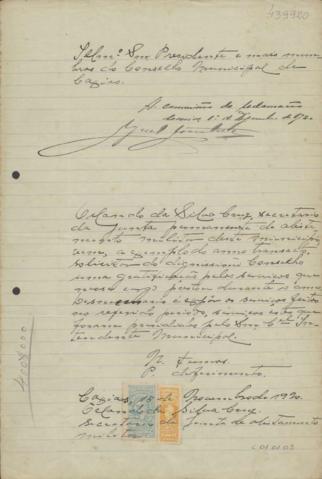 439920
Illmº. Snr. Presidente e mais mem-
bros do Conselho Municipal de
Caxias.
A commissão de
Caxias, 1º de Dezembro de 920
Orlando da Silva Cruz, secretario
da Junta permanente de alista-
mento militar deste municipio
vem, a exemplo do anno transacto,
do digníssimo Conselho
uma gratificação pelos serviços que
nesse cargo prestou durante o anno.
é expôr os serviços feitos
no referido periodo, serviços estes que
foram presididos pelo Snr. Cel. In-
tendente Municipal.
N. Termos.
P. deferimento.
Caxias, 15 de Novembro de 1920.
Orlando da Silva Cruz.
Secretario da Junta de alistamento
militar
400$000